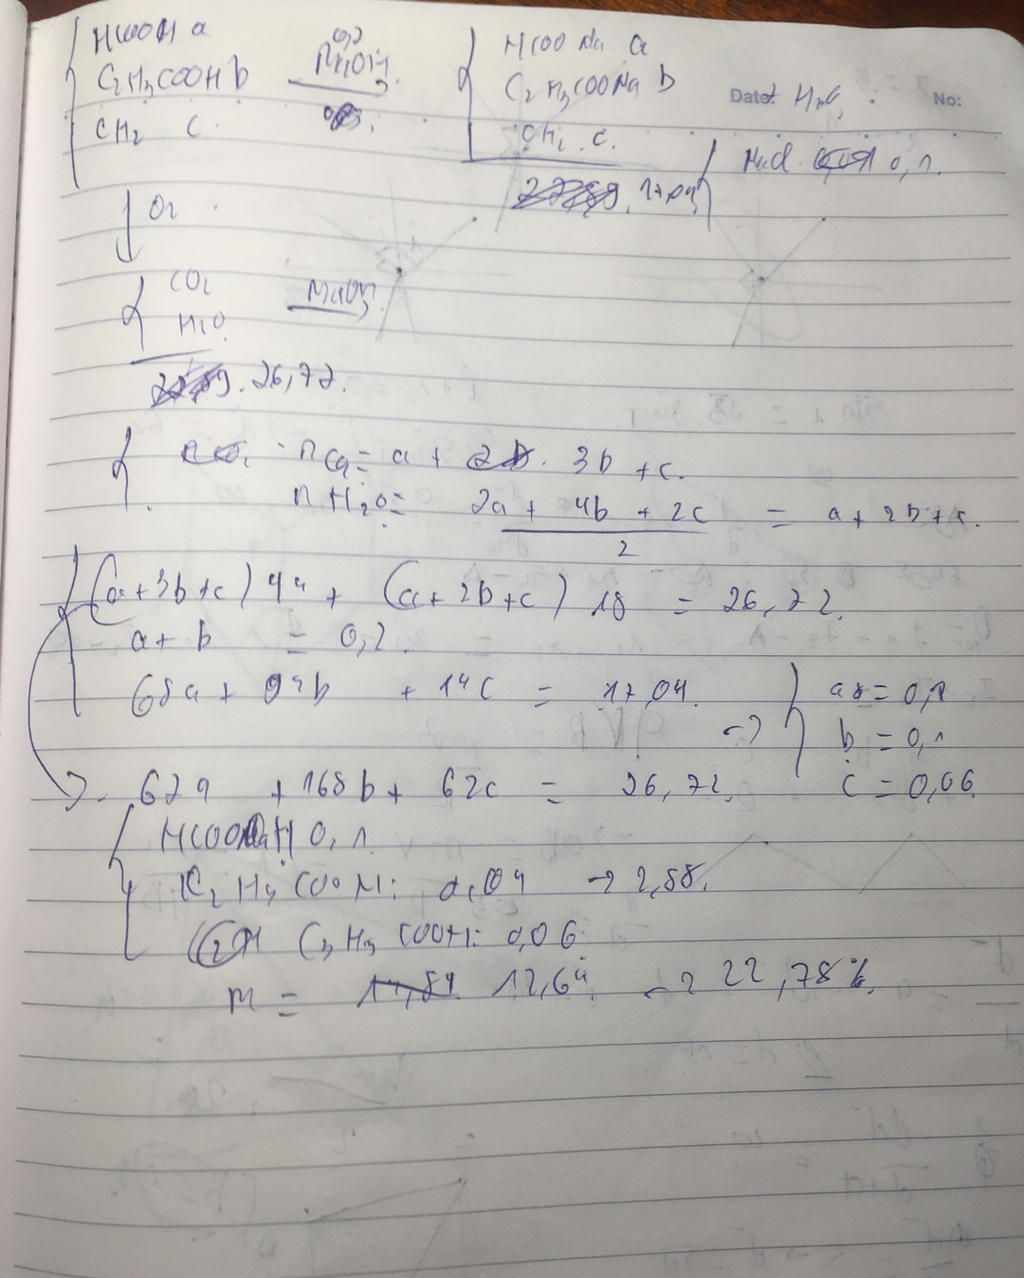 HCOOH a
0,2
C2H3COOH b NaOH
CH2 c
HCOONa a
C2H3COONa b
CH2 c.
Date: H2O No:
NaCl 0,1.
17,04
O2
CO2
H2O
NaOH
26,72.
nCO2 = a + 3b + c.
nH2O = 2a + 4b + 2c / 2 = a + 2b + c.
(a+3b+c) 44 + (a+2b+c) 18 = 26,72.
a + b = 0,2.
68a + 94b + 14c = 17,04.
→ a = 0,1
b = 0,1
c = 0,06
→ 62a + 168b + 62c = 26,72.
HCOOH 0,1.
C2H3COOH: 0,04 → 2,88.
C3H5COOH: 0,06
m = 12,64 → 22,78%.